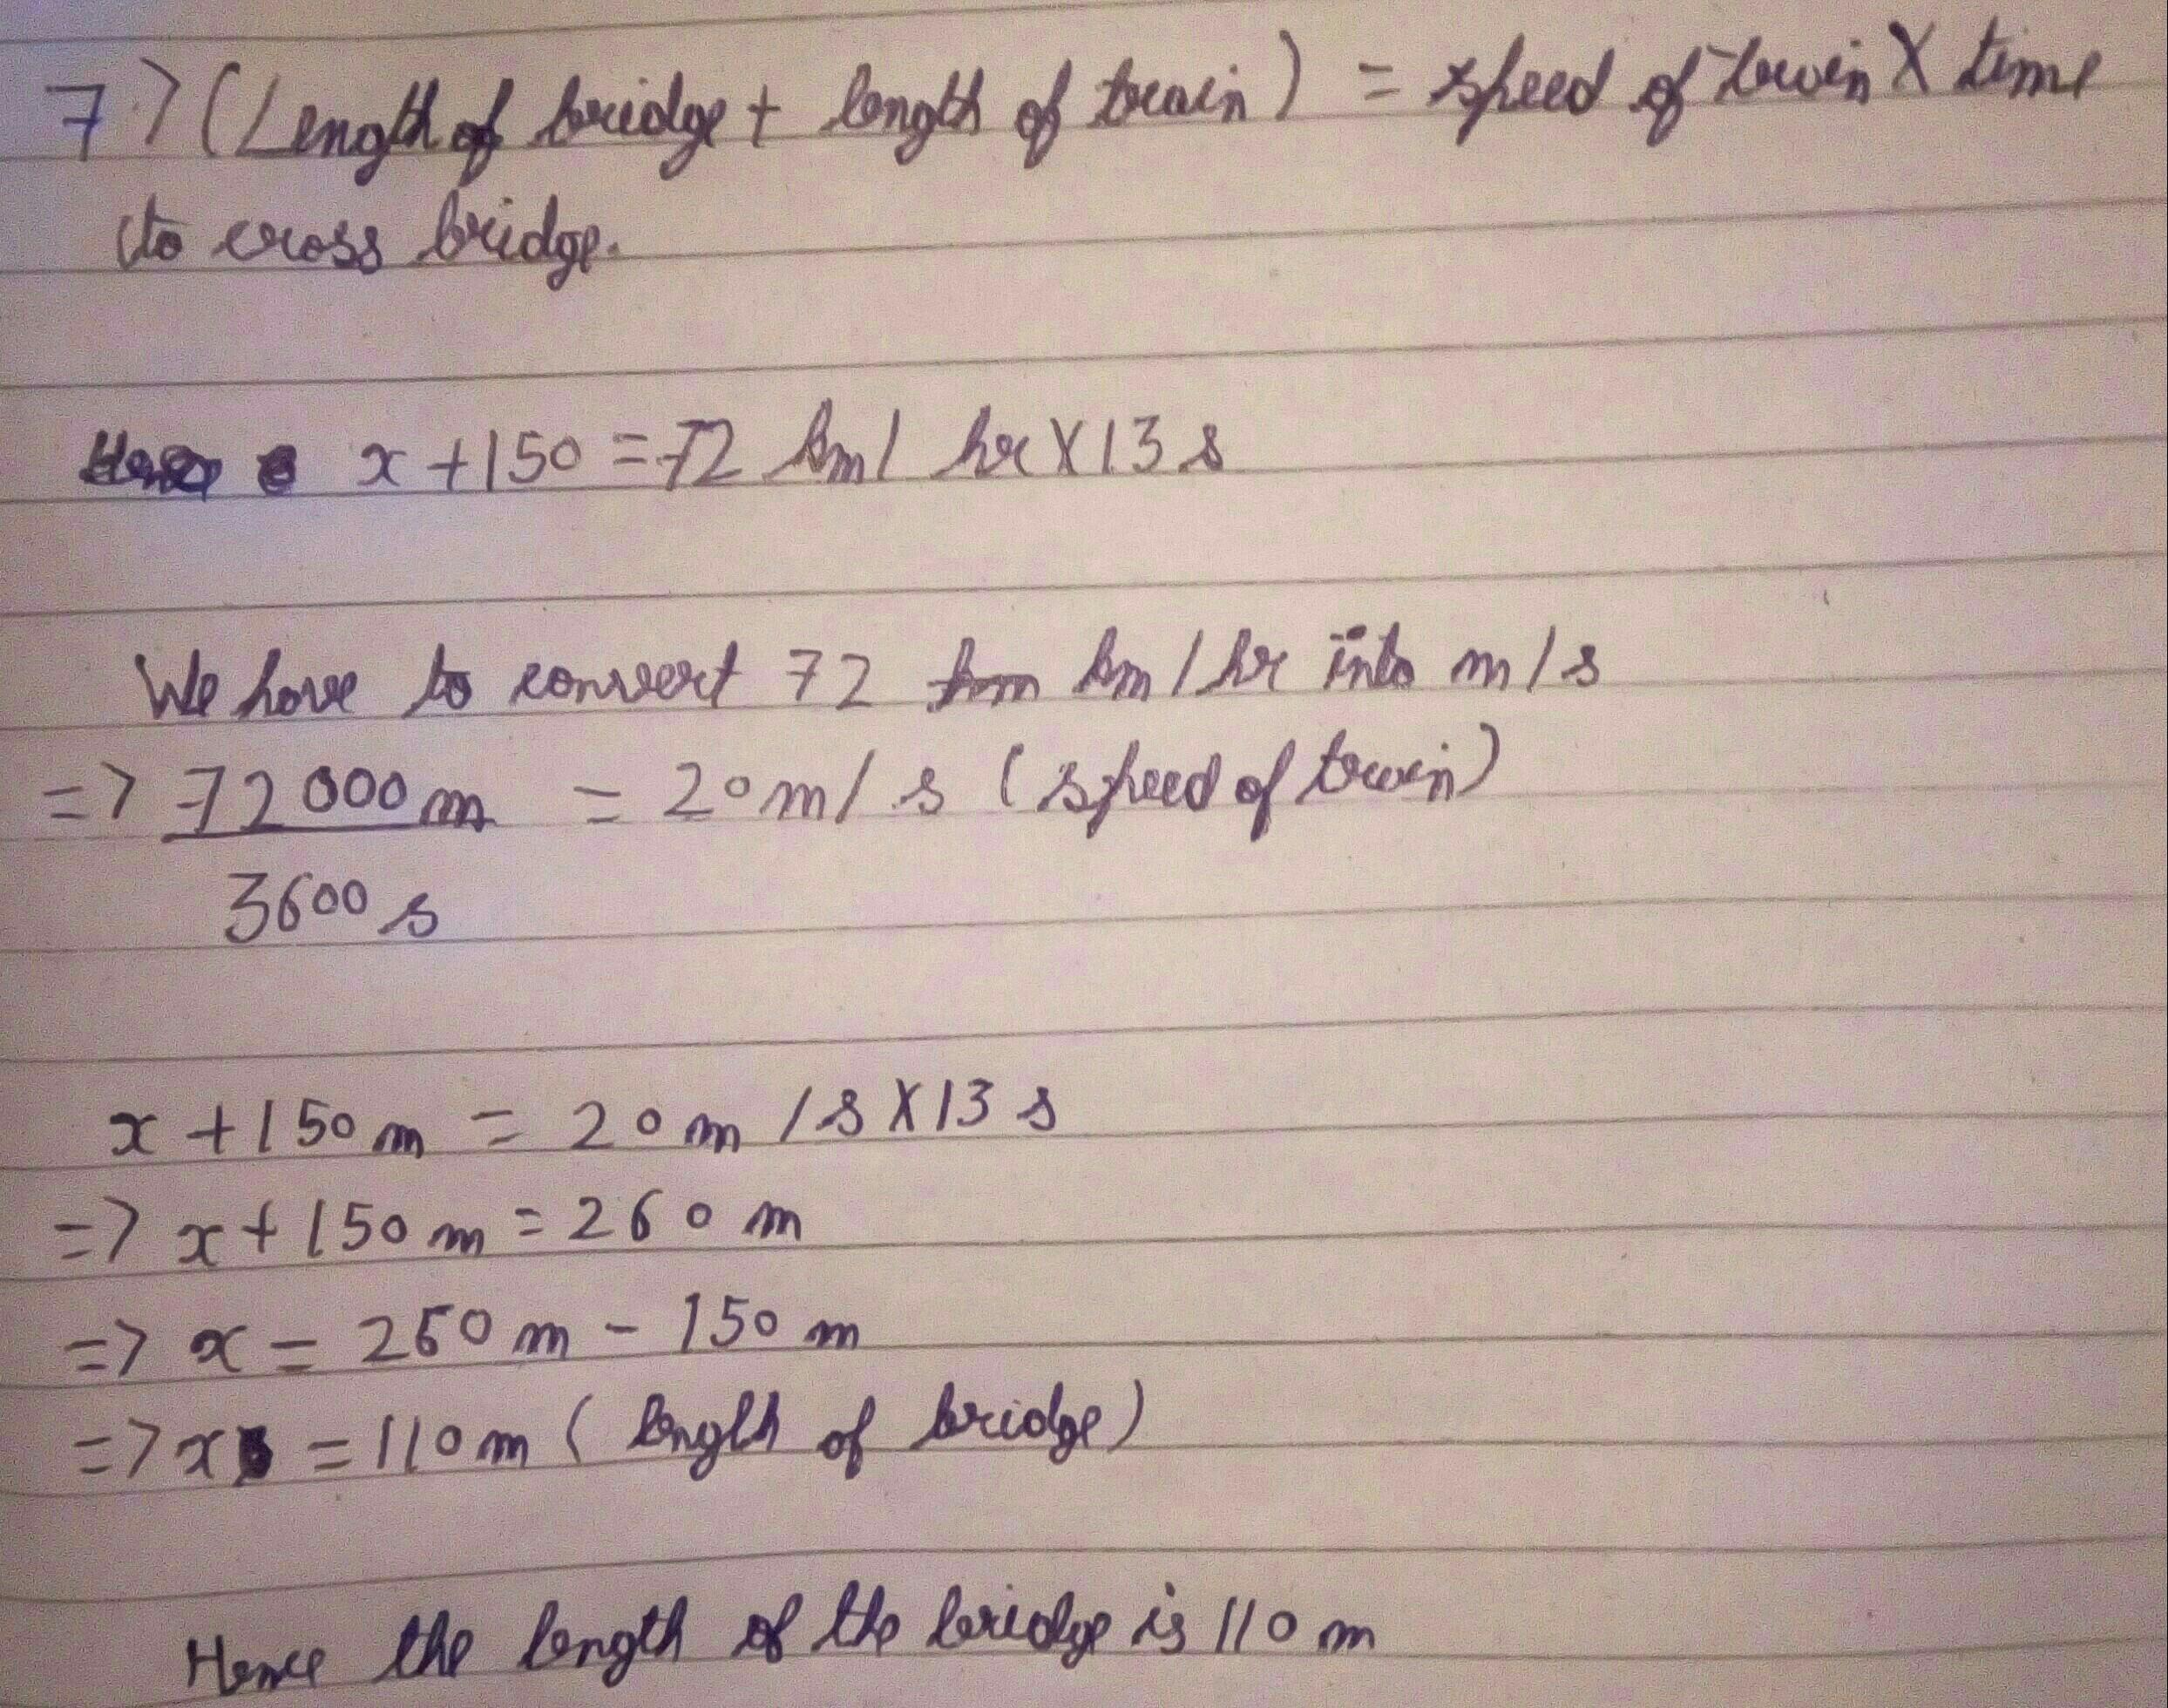 7.) (Length of bridge + length of train) = speed of train X time
to cross bridge.
x + 150 = 72 km / hr X 13 s
We have to convert 72 km / hr into m / s
=> 72000 m = 20 m / s (speed of train)
3600 s
x + 150 m = 20 m / s X 13 s
=> x + 150 m = 260 m
=> x = 260 m - 150 m
=> x = 110 m (length of bridge)
Hence the length of the bridge is 110 m